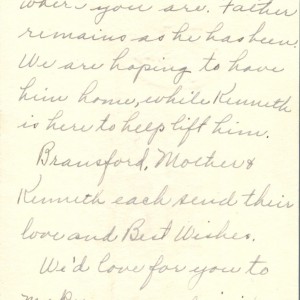 when you are. Father
remains as he has been.
We are hoping to have
him home, while Kenneth
is here to help lift him.
Bransford, Mother &
Kenneth each send their
love and Best Wishes.
We'd love for you to